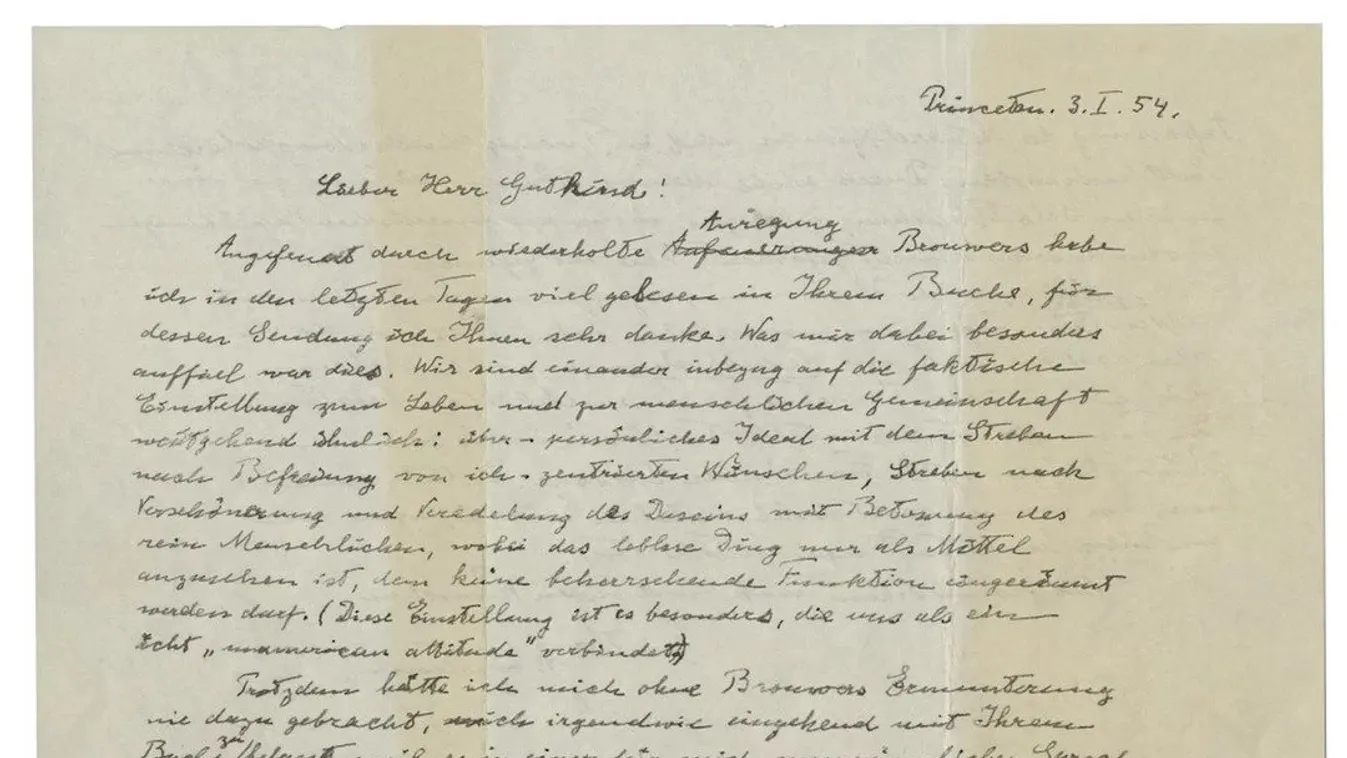 Princeton. 3. I. 54.
Lieber Herr Gutkind!
Anregung
Angefeuert durch wiederholte Brouwers habe
ich in den letzten Tagen viel gelesen in Ihrem Buche, für
dessen Sendung ich Ihnen sehr danke. Was mir dabei besonders
auffiel war dies. Wir sind einander inbezug auf die faktische
Einstellung zum Leben und zur menschlichen Gemeinschaft
weitgehend ähnlich: über-persönliches Ideal mit dem Streben
nach Befreiung von ich-zentrierten Wünschen, Streben nach
Verschönerung und Veredelung des Daseins mit Betonung des
rein Menschlichen, wobei das leblose Ding nur als Mittel
anzusehen ist, dem keine beherrschende Funktion eingeräumt
werden darf. (Diese Einstellung ist es besonders, die uns als ein
echt „unamerican attitude" verbindet.)
Trotzdem hätte ich mich ohne Brouwers Ermunterung
nie dazu gebracht, mich irgendwie eingehend mit Ihrem